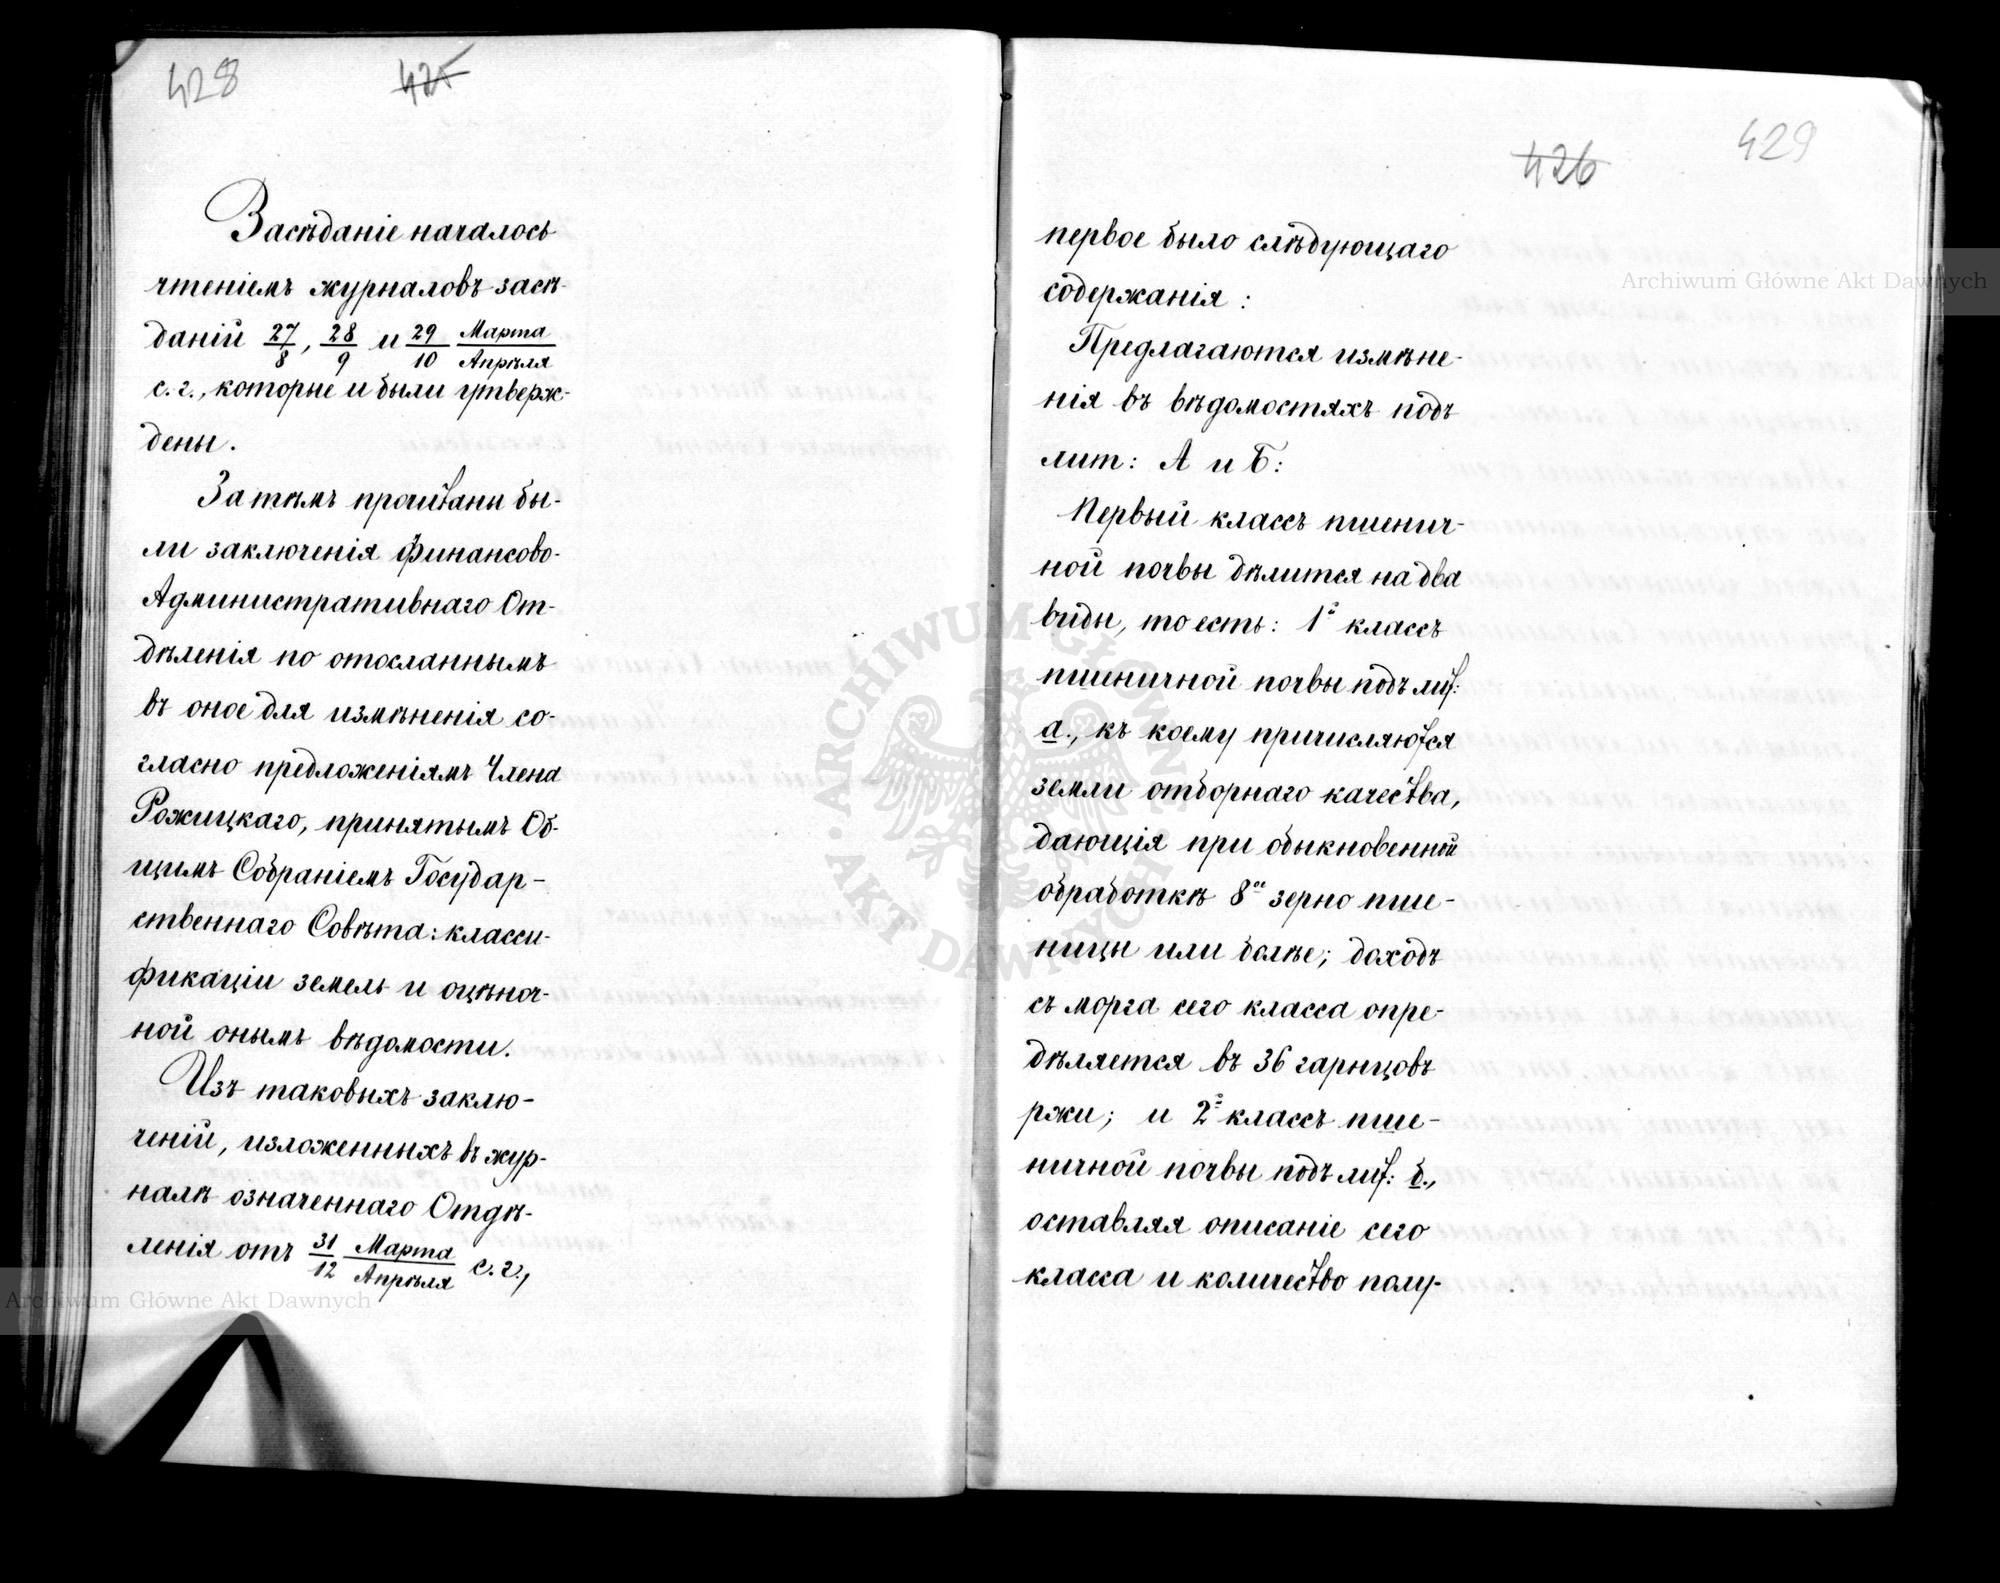 428
425
Засѣданіе началось
чтеніемъ журналовъ засѣ-
даній 27/8, 28/9 и 29/10 Марта/Апрѣля
с. г., которые и были утверж-
дены.
Затѣмъ прочитаны бы-
ли заключенія Финансово-
Административнаго От-
дѣленія по отосланнымъ
въ оное для измѣненія со-
гласно предложеніямъ Члена
Рожицкаго, принятымъ Об-
щимъ Собраніемъ Государ-
ственнаго Совѣта: класси-
фикаціи земель и оцѣноч-
ной онымъ вѣдомости.
Изъ таковыхъ заклю-
ченій, изложенныхъ въ жур-
налѣ означеннаго Отдѣ-
ленія отъ 31/12 Марта/Апрѣля с. г.,
426
429
первое было слѣдующаго
содержанія:
Предлагаются измѣне-
нія въ вѣдомостяхъ подъ
лит: А и Б:
Первый классъ пшенич-
ной почвы дѣлится на два
виды, то есть: 1й классъ
пшеничной почвы подъ лит:
а., къ коему причисляются
земли отборнаго качества,
дающія при обыкновенной
обработкѣ 8ое зерно пше-
ницы или болѣе; доходъ
съ морга сего класса опре-
дѣляется въ 36 гарнцовъ
ржи; и 2й классъ пше-
ничной почвы подъ лит: б.,
оставляя описаніе сего
класса и количество полу-
Archiwum Główne Akt Dawnych
Archiwum Główne Akt Dawnych
ARCHIWUM GŁÓWNE AKT DAWNYCH